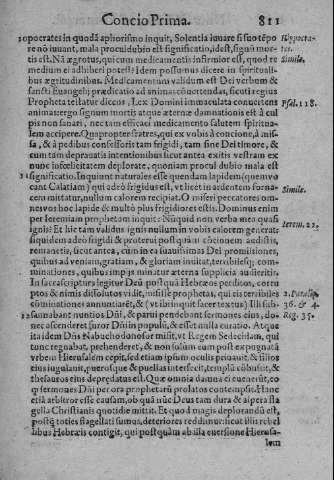 Concio Prima. 811
10 pocrates in quodā aphorismo inquit, Solentia iuuare si suo tēpo
re nō iuuant, mala proculdubio est significatio, idest, signū mor-
tis est. Nā ægrotus, qui cum medicamentis infirmior est, quod re
medium ei adhiberi potest? Idem possumus dicere in spirituali-
bus ægritudinibus. Medicamentum validum est Dei verbum &
sancti Euangelij prædicatio ad animas cōuertendas, sicuti regius
Propheta testatur dicens, Lex Domini immaculata conuertens
animas: ergo signum mortis atque æternæ damnationis est ā cul
pis non sanari, nec tam efficaci medicamento salutem spiritua-
lem accipere. Quapropter fratres, qui ex vobis à concione, à mis-
sa, & à pedibus confessoris tam frigidi, tam sine Dei timore, &
cum tam deprauatis intentionibus sicut antea exitis vestram ex
nunc infœlicitatem deplorate, quoniam procul dubio mala est
significatio. Inquiunt naturales esse quendam lapidem (quem vo
cant Calatiam) qui adeò frigidus est, vt licet in ardentem forna-
cem mittatur, nullum calorem recipiat. O miseri peccatores om-
nes vos hoc lapide & multò plus frigidiores estis. Dominus enim
per Ieremiam prophetam inquit: Nūquid non verba mea quasi
ignis? Et hic tam validus ignis nullum in vobis calorem generat:
siquidem adeò frigidi & proterui postquàm cōcionem audistis,
remanetis, sicut antea, cùm in ea suauissimas Dei promissiones,
quibus ad veniam, gratiam, & gloriam inuitat, terribilesq; com-
minationes, quibus impijs minatur æterna supplicia audieritis.
In sacra scriptura legitur Deū postquā Hebræos perditos, corru
ptos & nimis dissolutos vidit, misisse prophetas, qui eis terribiles
cōminationes annuntiarēt, & (vt ibi inquit sacer textus) Illi sub-
sannabant nuntios Dñi, & parui pendebant sermones eius, do-
nec ascenderet furor Dñi in populū, & esset nulla curatio. Atque
ita idem Dñs Nabuchodonosor misit, vt Regem Sedeciam, qui
tunc regnabat, prehenderet, & non solùm eum post expugnatā
vrbem Hierusalem cepit, sed etiam ipsum oculis priuauit, & filios
eius iugulauit, puerosque & puellas interfecit, templū cōbussit, &
thesauros eius deprædatus est. Quæ omnia damna ei euenerūt, eo
q; sermones Dñi per ora prophetarū prolatos contempsit. Hanc
etiā arbitror esse causam, ob quā nūc Deus tam dura & aspera fla
gella Christianis quotidie mittit. Et quod magis deplorandū est,
postq̃ totics flagellati sumus, deteriores reddimur: sicut illis rebel
libus Hebræis contigit, qui postquàm ab illa euersione Hierusa-
lem
Hyppocra-
tes.
Simile.
Psal. 118.
Simile.
Ierem. 23.
2. Paralip.
36. & 4.
Reg. 35.